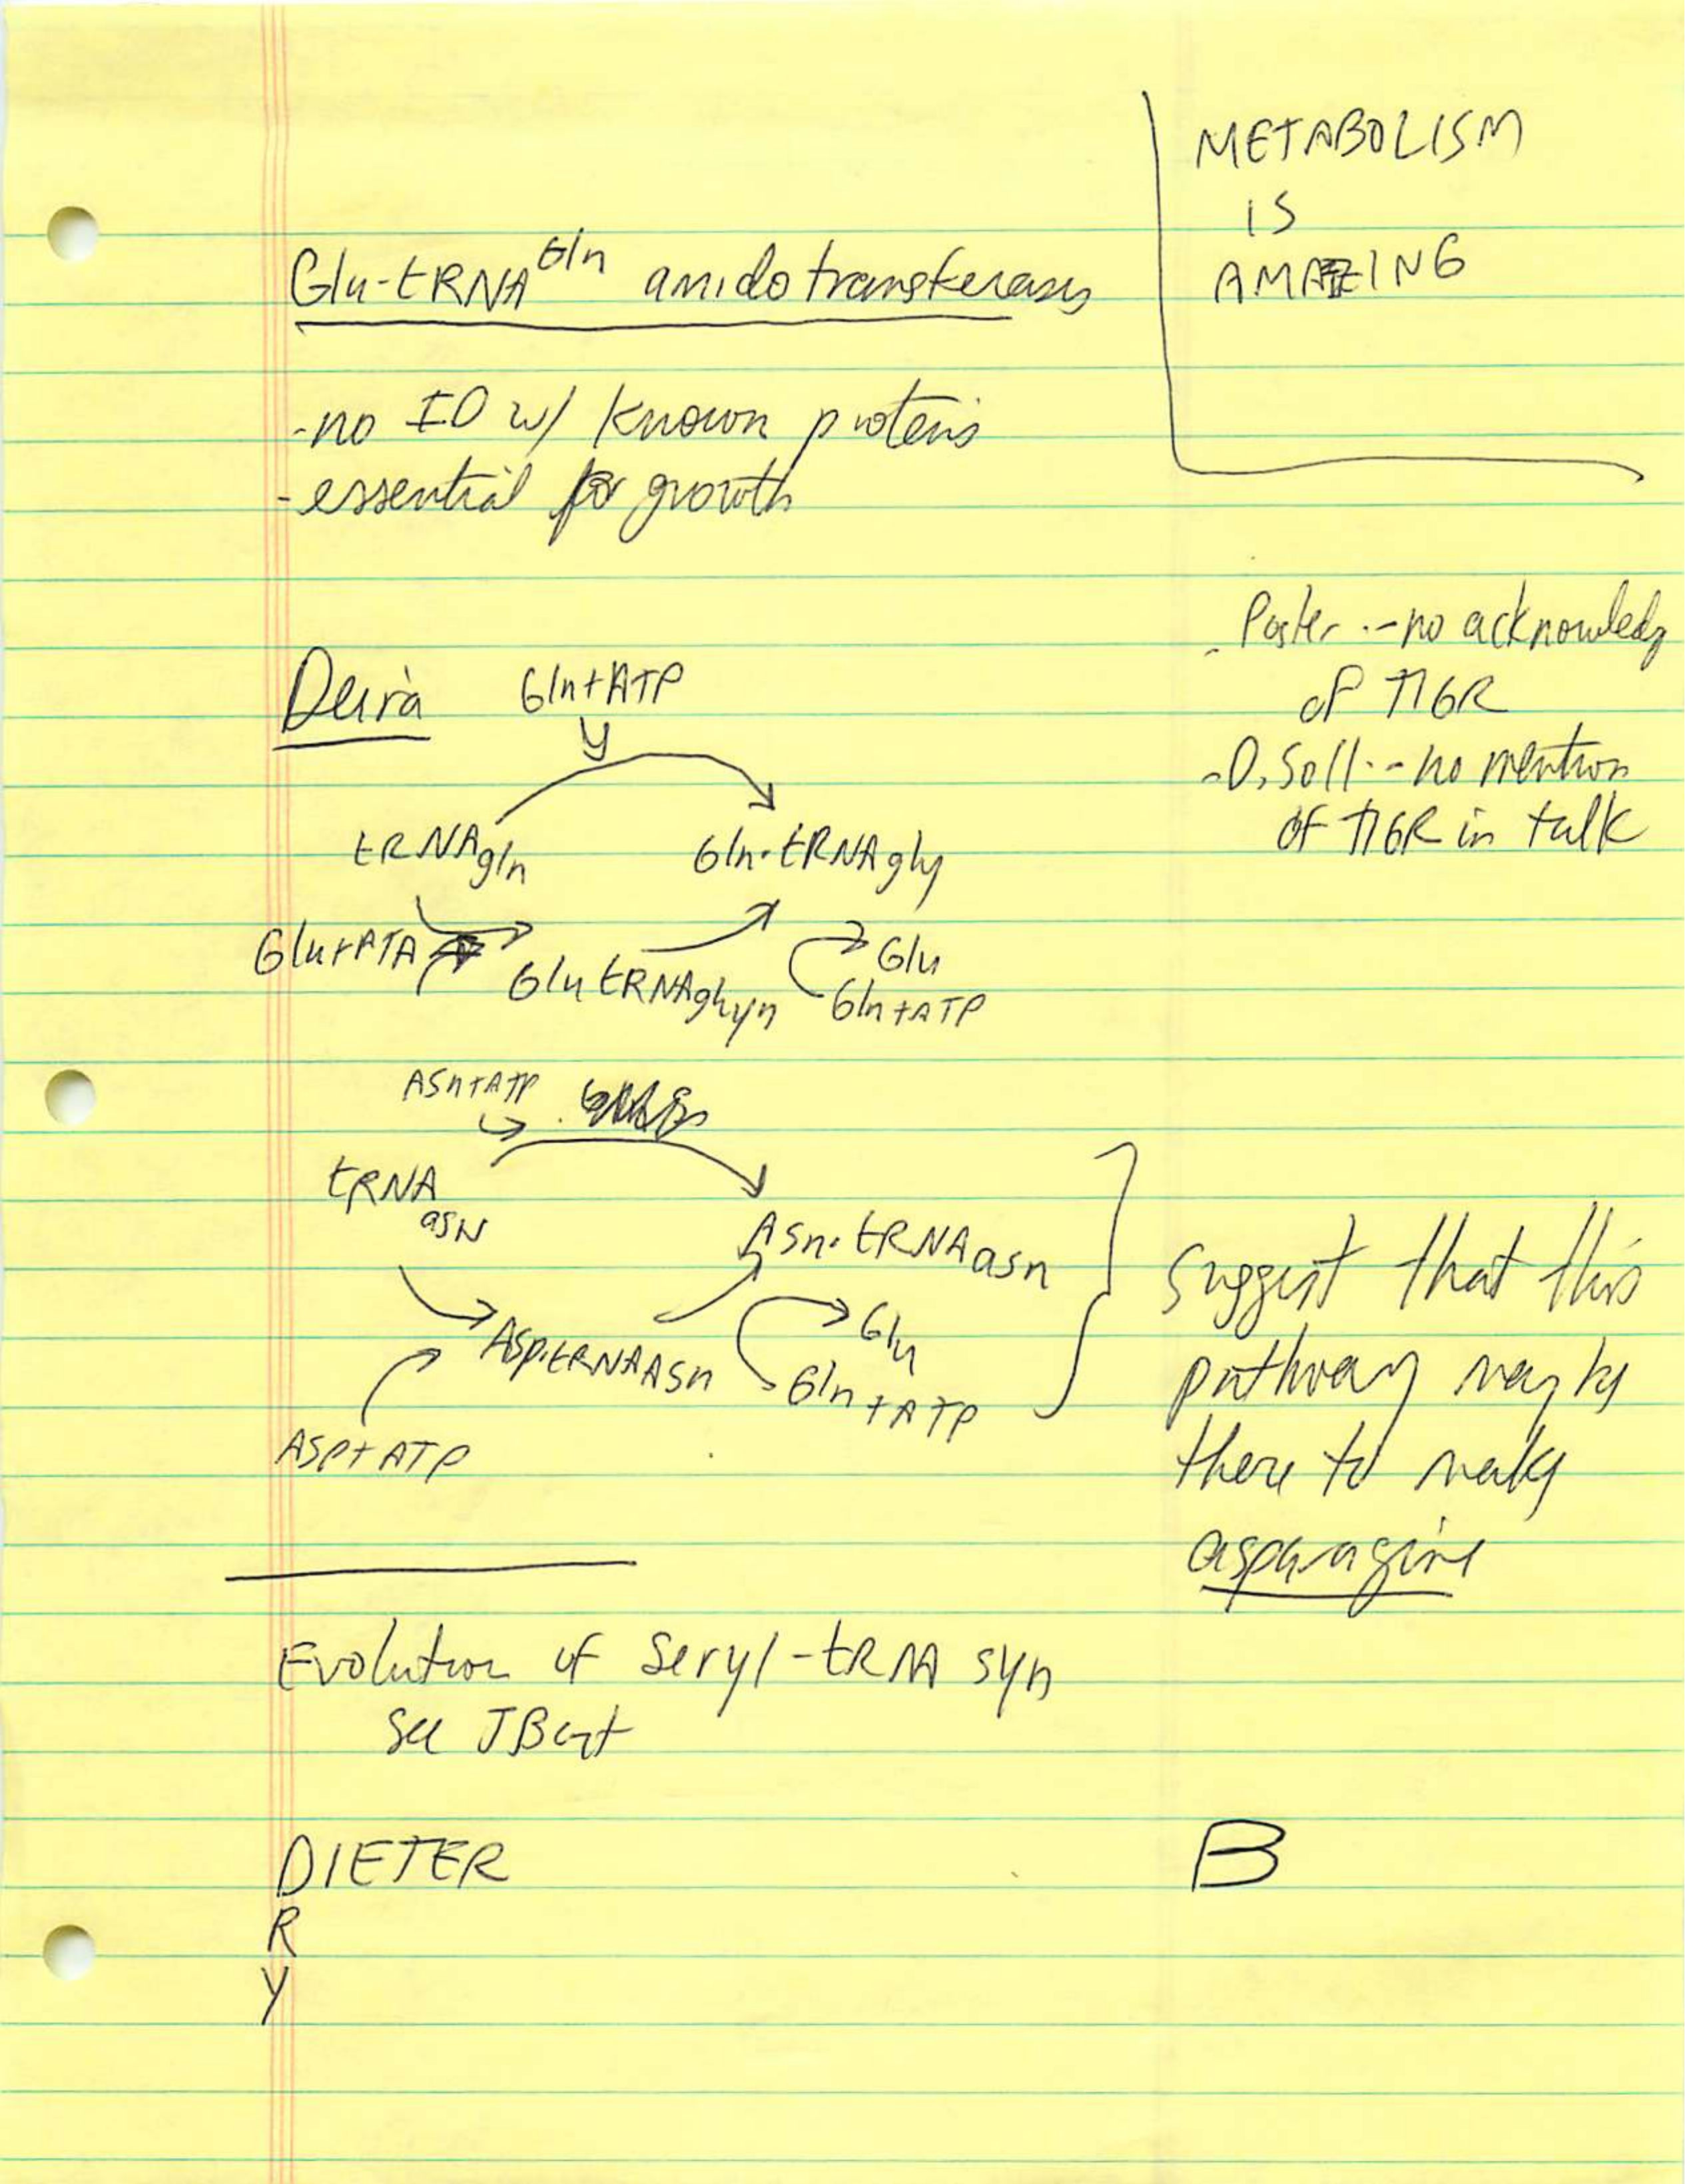 METABOLISM
IS
AMAZING
Glu-tRNA Gln amidotransferases
-no ID w/ known proteins
-essential for growth
- Poster -- no acknowledg
of TIGR
- D. Soll -- no mention
of TIGR in talk
Deira
Gln+ATP
tRNAgln
Gln-tRNAgly
Glu+ATA
Glu tRNA
Glu
Gln+ATP
Asn+ATP
tRNA
asN
Asn-tRNAasn
Asp-tRNAAsn
Glu
Gln+ATP
ASP+ATP
suggest that this
pathway may be
there to make
asparagine
Evolution of Seryl-tRNA syn
See JBact
DIETER
R
Y
B